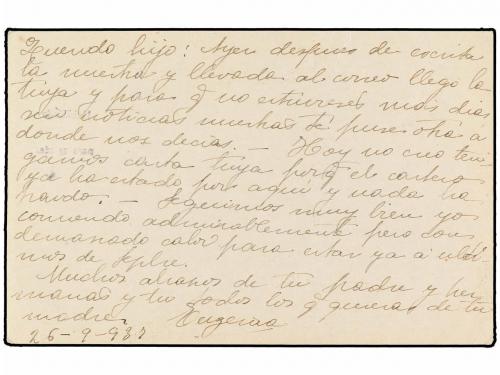 Querido hijo: Ayer despues de escrita
la nuestra y llevada al correo llego la
tuya y para q no estuvieses mas dias
sin noticias nuestras te puse otra a
donde nos decias. — Hoy no creo ten-
gamos carta tuya porq el cartero
ya ha estado por aqui y nada ha
traido. — Seguimos muy bien yo
comiendo admirablemente pero con
demasiado calor para estar ya á ulti-
mos de Spbre.
Muchos abrazos de tu padre y her
manas y tu todos los q quieras de tu
madre Eugenia
26-9-937